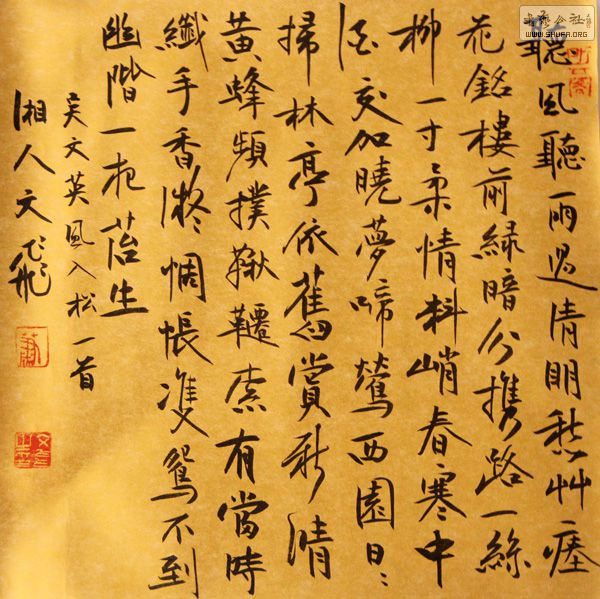 WWW.SHUFA.ORG
聽風聽雨過清明愁艸瘞
花銘樓前綠暗分携路一絲
柳一寸柔情料峭春寒中
酒交加曉夢啼鶯西園日〻
掃林亭依舊賞新晴
黃蜂頻撲鞦韆索有當時
纖手香凝惆悵雙鴛不到
幽階一夜苔生
吳文英風入松一首
湘人文飛